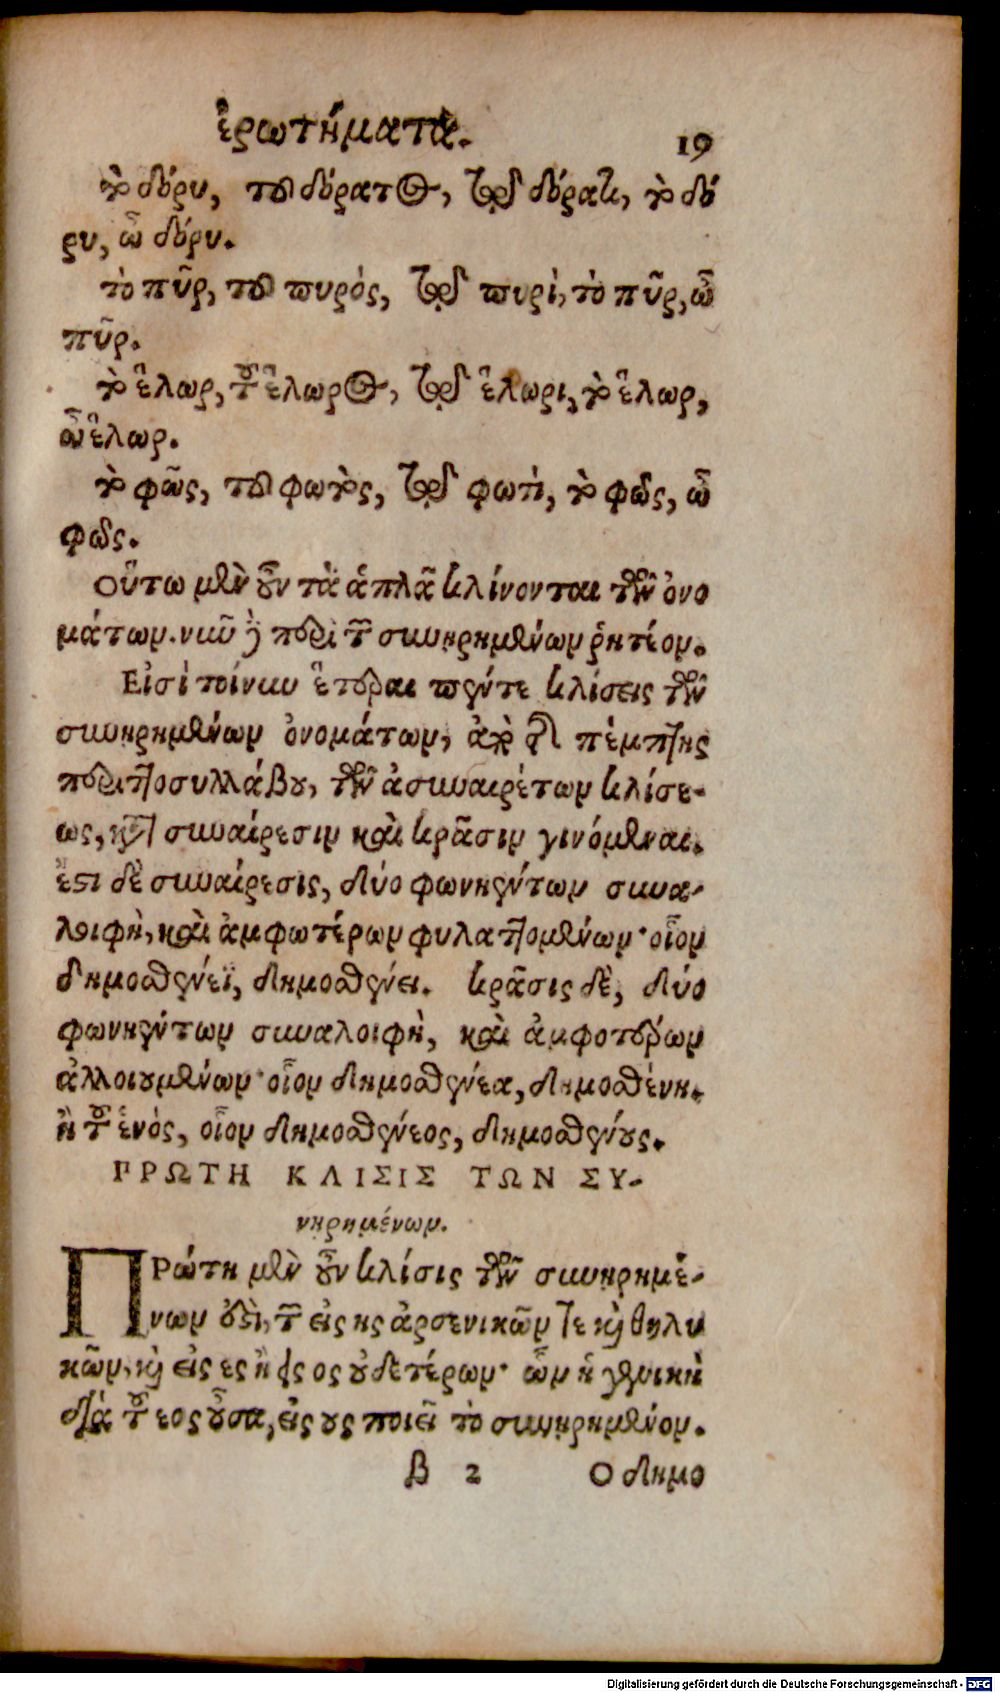 ἐρωτήματα. 19
τὸ δόρυ, τοῦ δόρατος, τῷ δόρατι, τὸ δό
ρυ, ὦ δόρυ.
τὸ πῦρ, τοῦ πυρὸς, τῷ πυρὶ, τὸ πῦρ, ὦ
πῦρ.
τὸ ἕλωρ, τοῦ ἕλωρος, τῷ ἕλωρι, τὸ ἕλωρ,
ὦ ἕλωρ.
τὸ φῶς, τοῦ φωτὸς, τῷ φωτὶ, τὸ φῶς, ὦ
φῶς.
Οὕτω μὲν οὖν τὰ ἁπλᾶ κλίνονται τῶν ὀνο
μάτων. νῦν ἢ περὶ τῶν συνῃρημένων ῥητέον.
Εἰσὶ τοίνυν ἕτεραι πέντε κλίσεις τῶν
συνῃρημένων ὀνομάτων, ἀπὸ τῆς πέμπτης
περιττοσυλλάβου, τῶν ἀσυναιρέτων κλίσε-
ως, κατὰ συναίρεσιν καὶ κρᾶσιν γινόμεναι.
ἔστι δὲ συναίρεσις, δύο φωνηέντων συνα-
λοιφὴ, καὶ ἀμφωτέρων φυλαττομένων· οἷον
δημοσθένεϊ, δημοσθένει. κρᾶσις δὲ, δύο
φωνηέντων συναλοιφὴ, καὶ ἀμφοτέρων
ἀλλοιουμένων· οἷον δημοσθένεα, δημοσθένη.
ἢ τοῦ ἑνὸς, οἷον δημοσθένεος, δημοσθένους.
ΠΡΩΤΗ ΚΛΙΣΙΣ ΤΩΝ ΣΥ-
νηρημένων.
ΠΡώτη μὲν οὖν κλίσις τῶν συνῃρημέ-
νων ἐστὶ, τῶν εἰς ης ἀρσενικῶν τε καὶ θηλυ
κῶν, καὶ εἰς ες ἢ εἰς ος οὐδετέρων· ὧν ἡ γενικὴ
διὰ τοῦ εος οὖσα, εἰς ους ποιεῖ τὸ συνῃρημένον.
β 2 Ο δημο
Digitalisierung gefördert durch die Deutsche Forschungsgemeinschaft - DFG